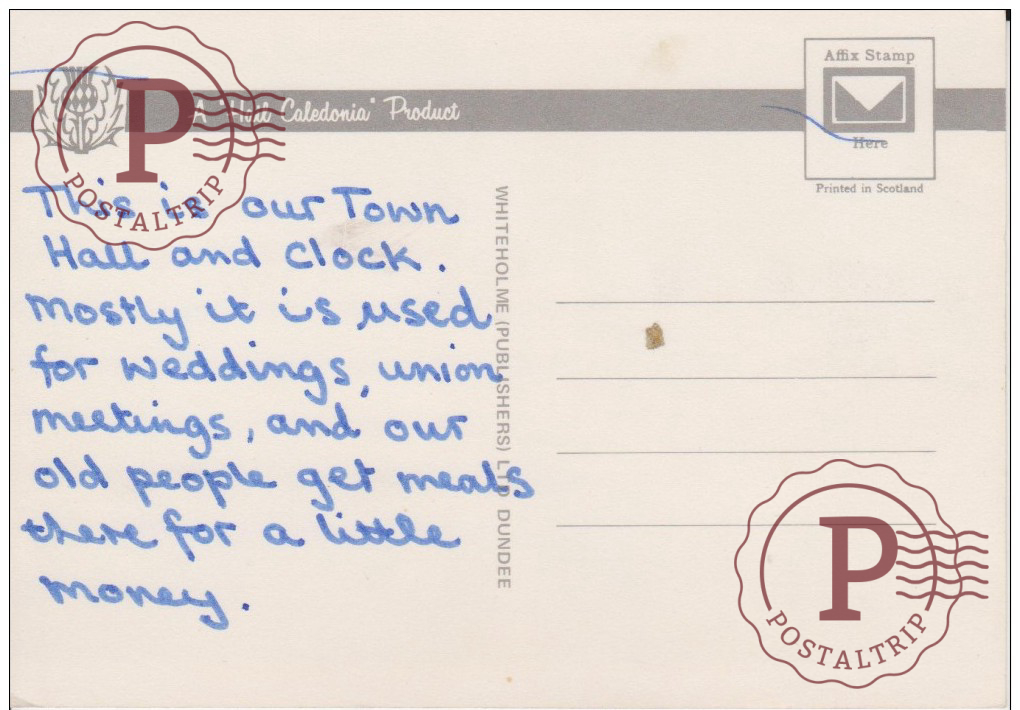 A "Hail Caledonia" Product
Affix Stamp
Here
Printed in Scotland
This is our Town
Hall and Clock.
Mostly it is used
for weddings, union
meetings, and our
old people get meals
there for a little
money.
WHITEHOLME (PUBLISHERS) LTD DUNDEE
P
POSTALTRIP
P
POSTALTRIP